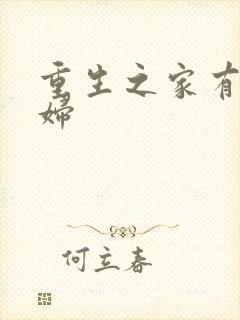 重生之家有
婦
何立春